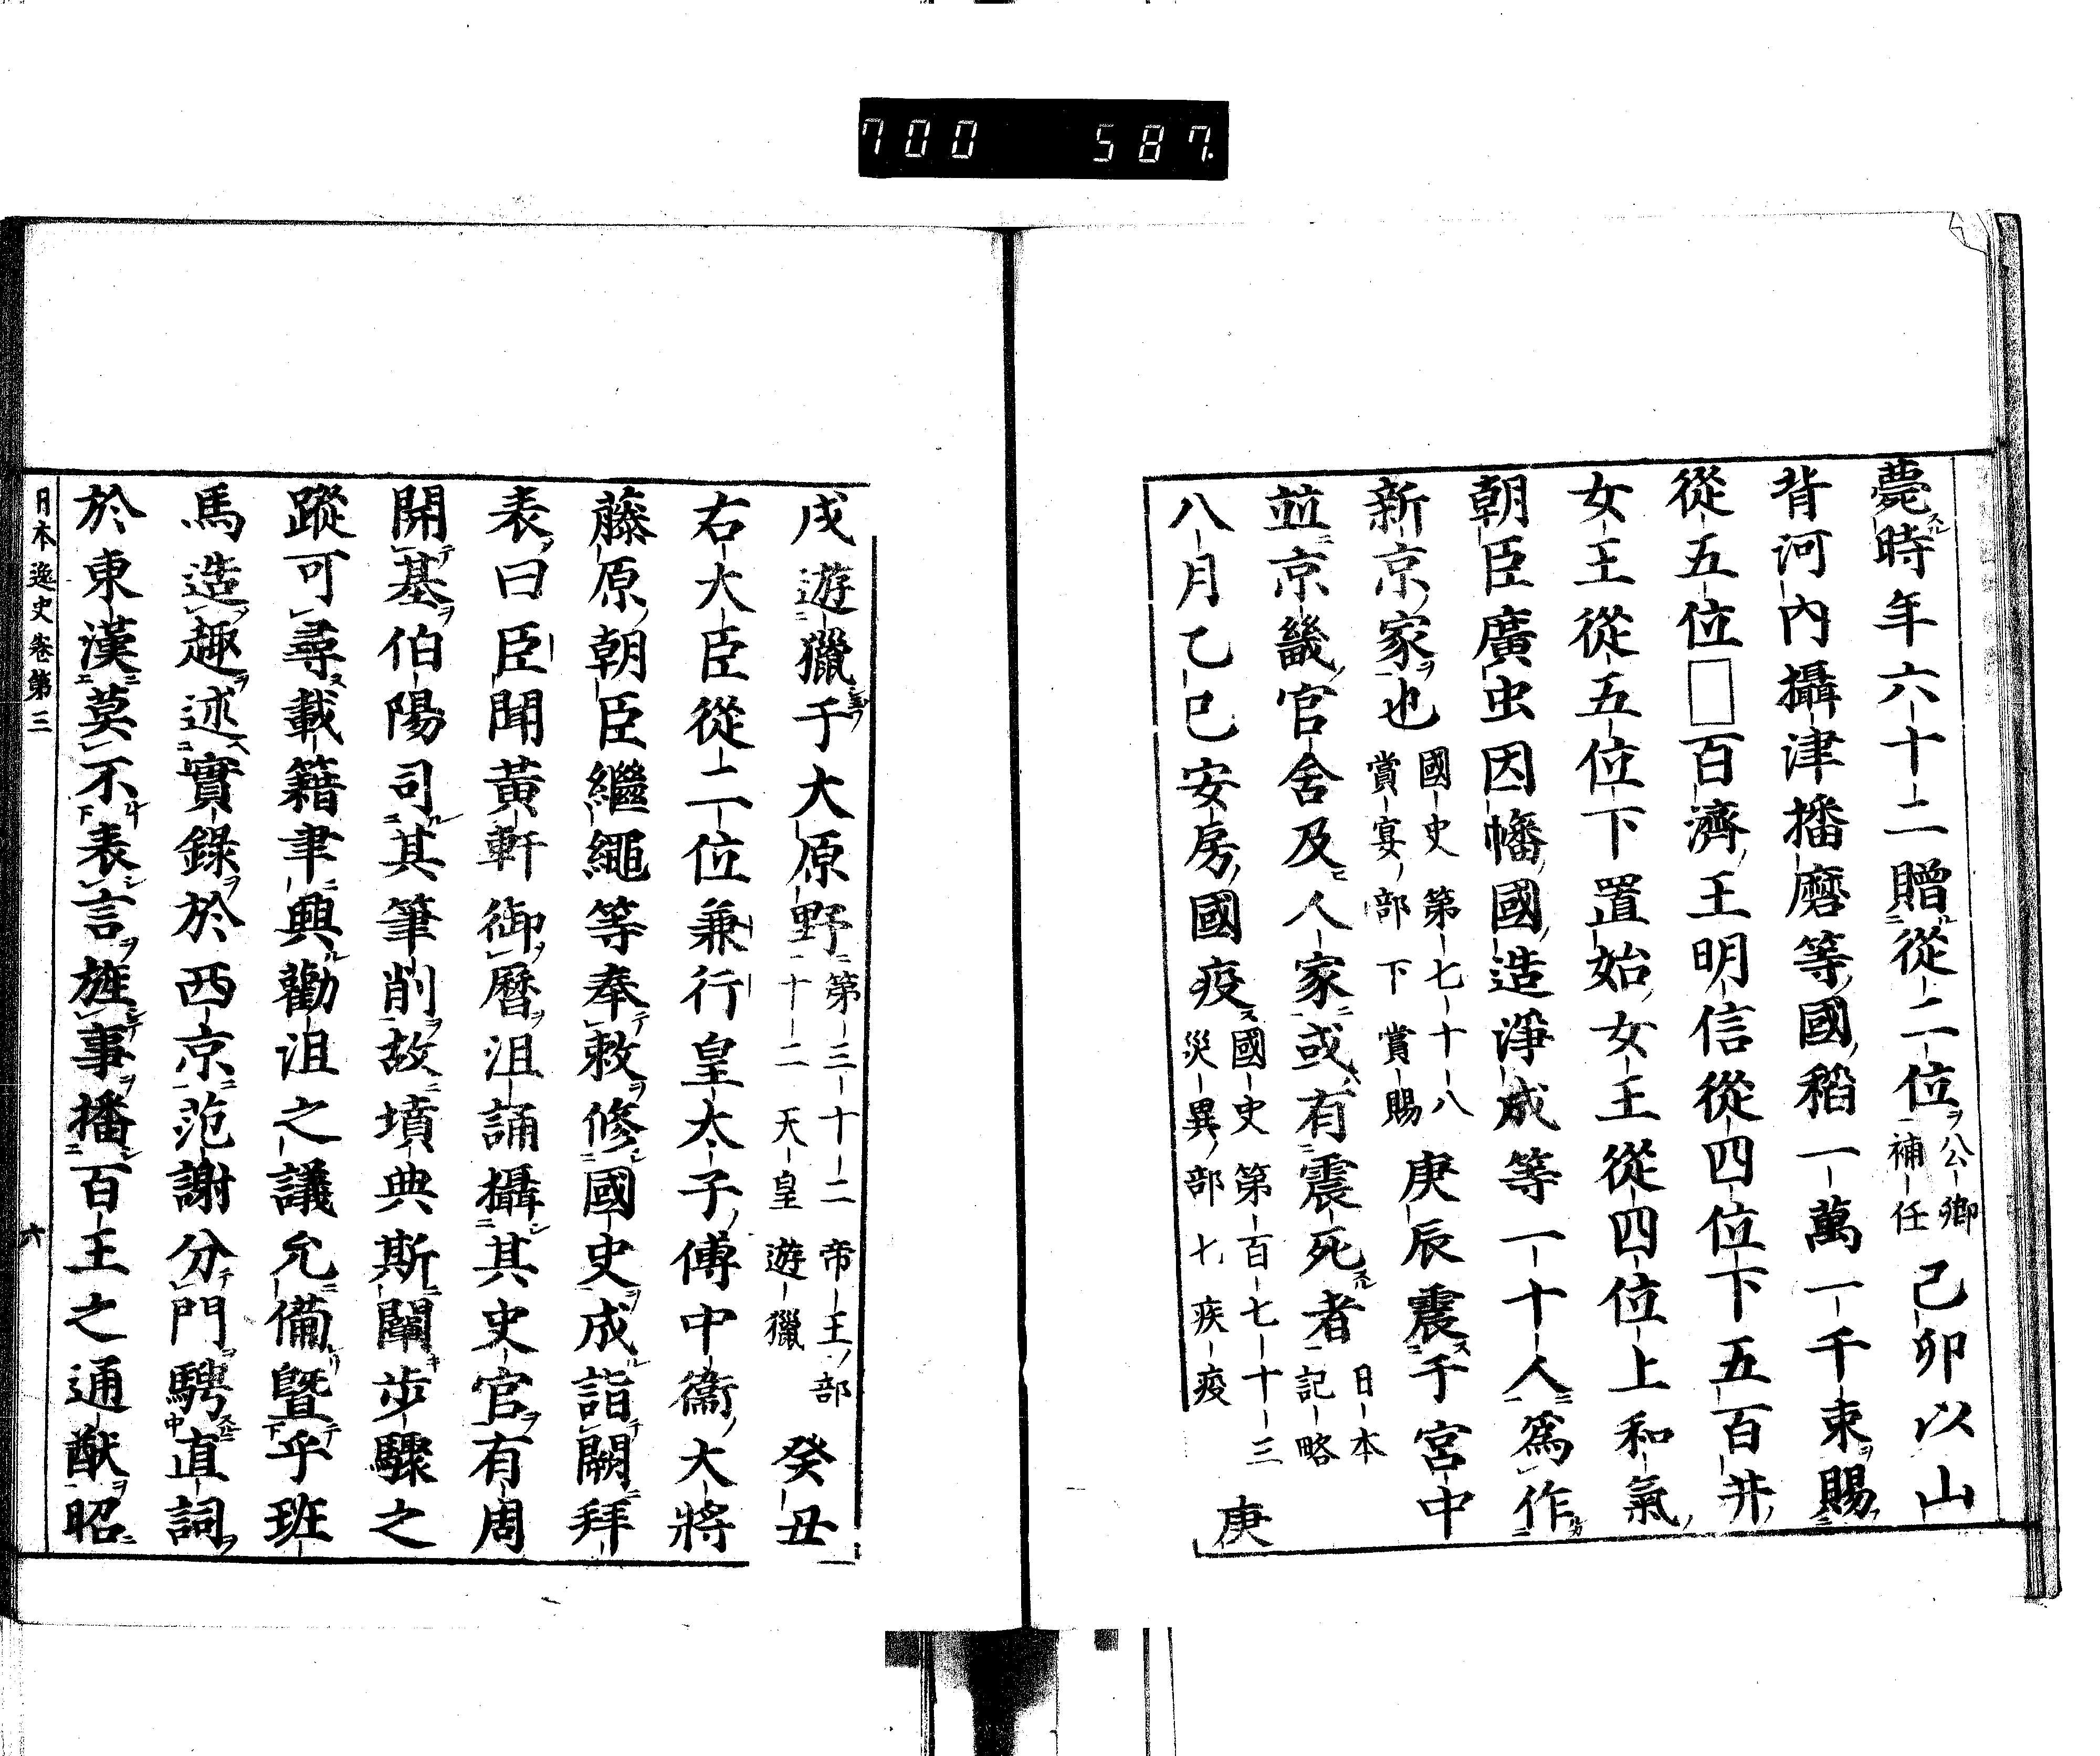 700 587.
薨時年六十二贈從二位公卿補任己卯以山
背河內攝津播磨等國稻一萬一千束賜
從五位□百濟王明信從四位下五百井
女王從五位下置始女王從四位上和氣
朝臣廣虫因幡國造淨成等一十人爲作
新京家也國史第七十八賞宴部下賞賜庚辰震于宮中
並京畿官舍及人家或有震死者日本記略
八月乙巳安房國疫國史第百七十三災異部七疾疫庚
戌遊獵于大原野第三十二帝王部十二天皇遊獵癸丑
右大臣從二位兼行皇太子傅中衞大將
藤原朝臣繼繩等奉敕修國史成詣闕拜
表曰臣聞黃軒御曆沮誦攝其史官有周
開基伯陽司其筆削故墳典斯闡步驟之
蹤可尋載籍聿興勸沮之議允備暨乎班
馬造趣述實錄於西京范謝分門騁直詞
於東漢莫不表言旌事播百王之通猷昭
日本逸史卷第三 六